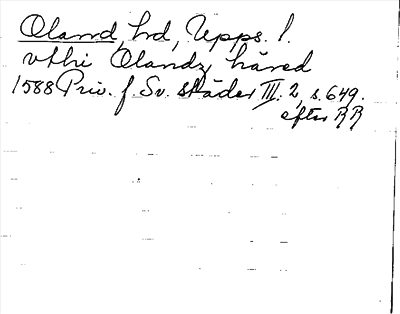 Oland, hd, Upps. l.
vthi Olandz häred
1588 Priv. f. Sv. städer III. 2, s. 649.
efter RR